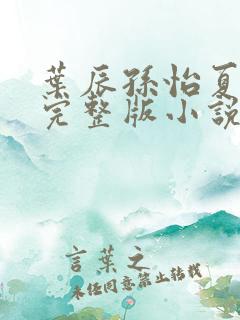 葉辰孫怡夏
完整版小說
言葉之
未経同意禁止轉載